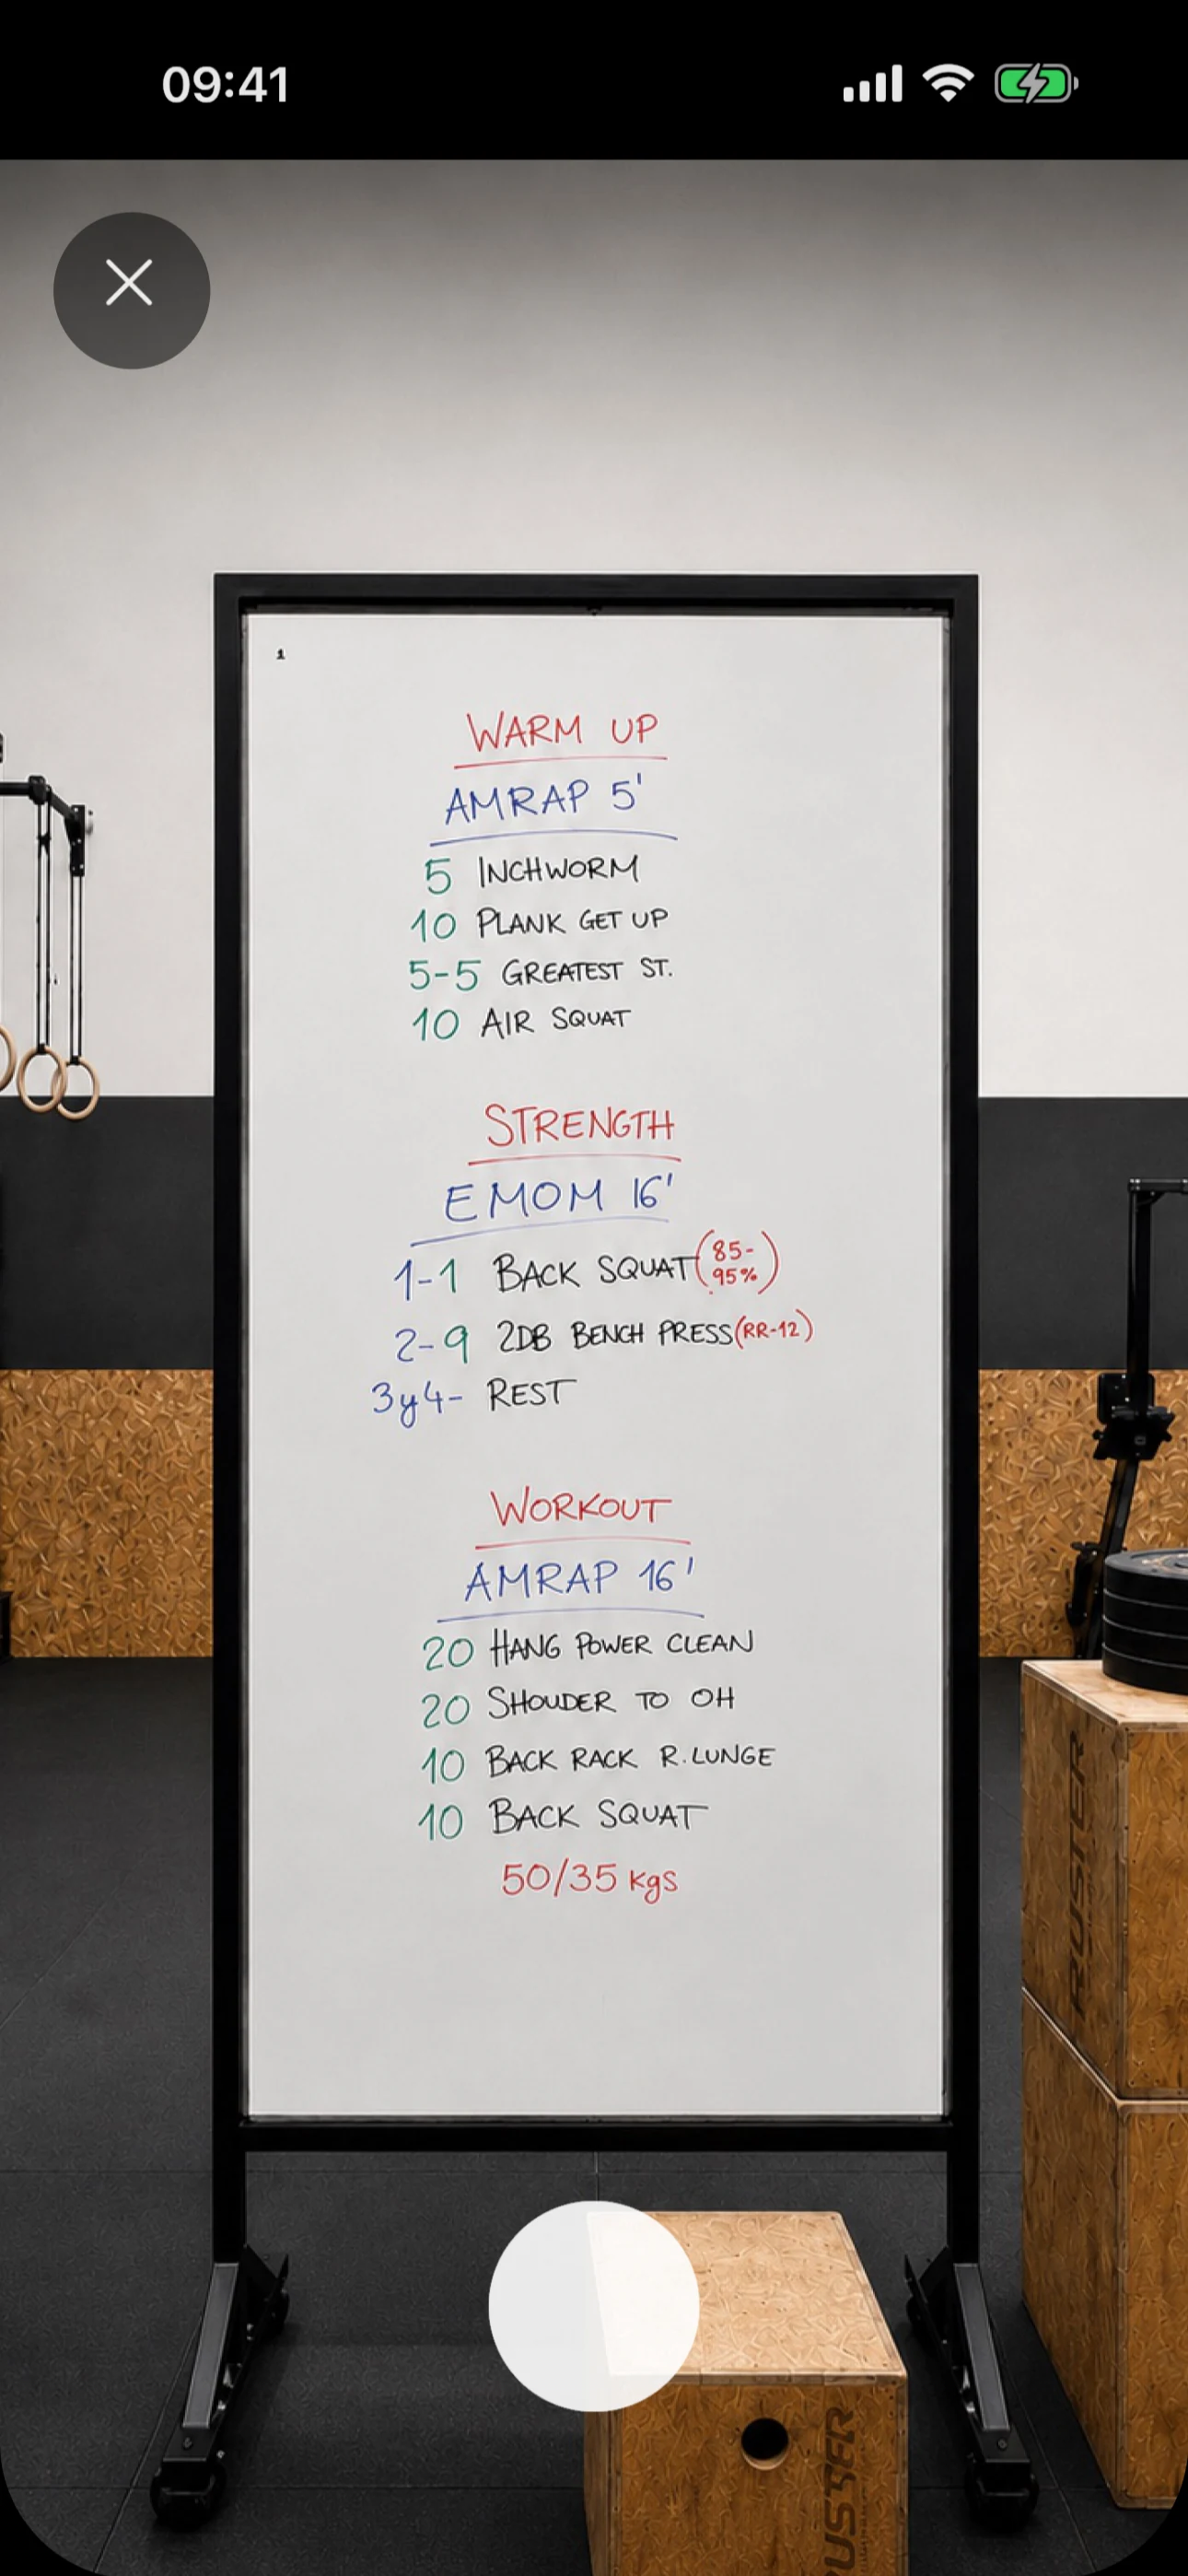 09:41
1
WARM UP
AMRAP 5'
5 INCHWORM
10 PLANK GET UP
5-5 GREATEST ST.
10 AIR SQUAT
STRENGTH
EMOM 16'
1-1 BACK SQUAT (85-
95%)
2-9 2DB BENCH PRESS (RR-12)
3y4- REST
WORKOUT
AMRAP 16'
20 HANG POWER CLEAN
20 SHOUDER TO OH
10 BACK RACK R.LUNGE
10 BACK SQUAT
50/35 kgs
RUSTER
RUSTER